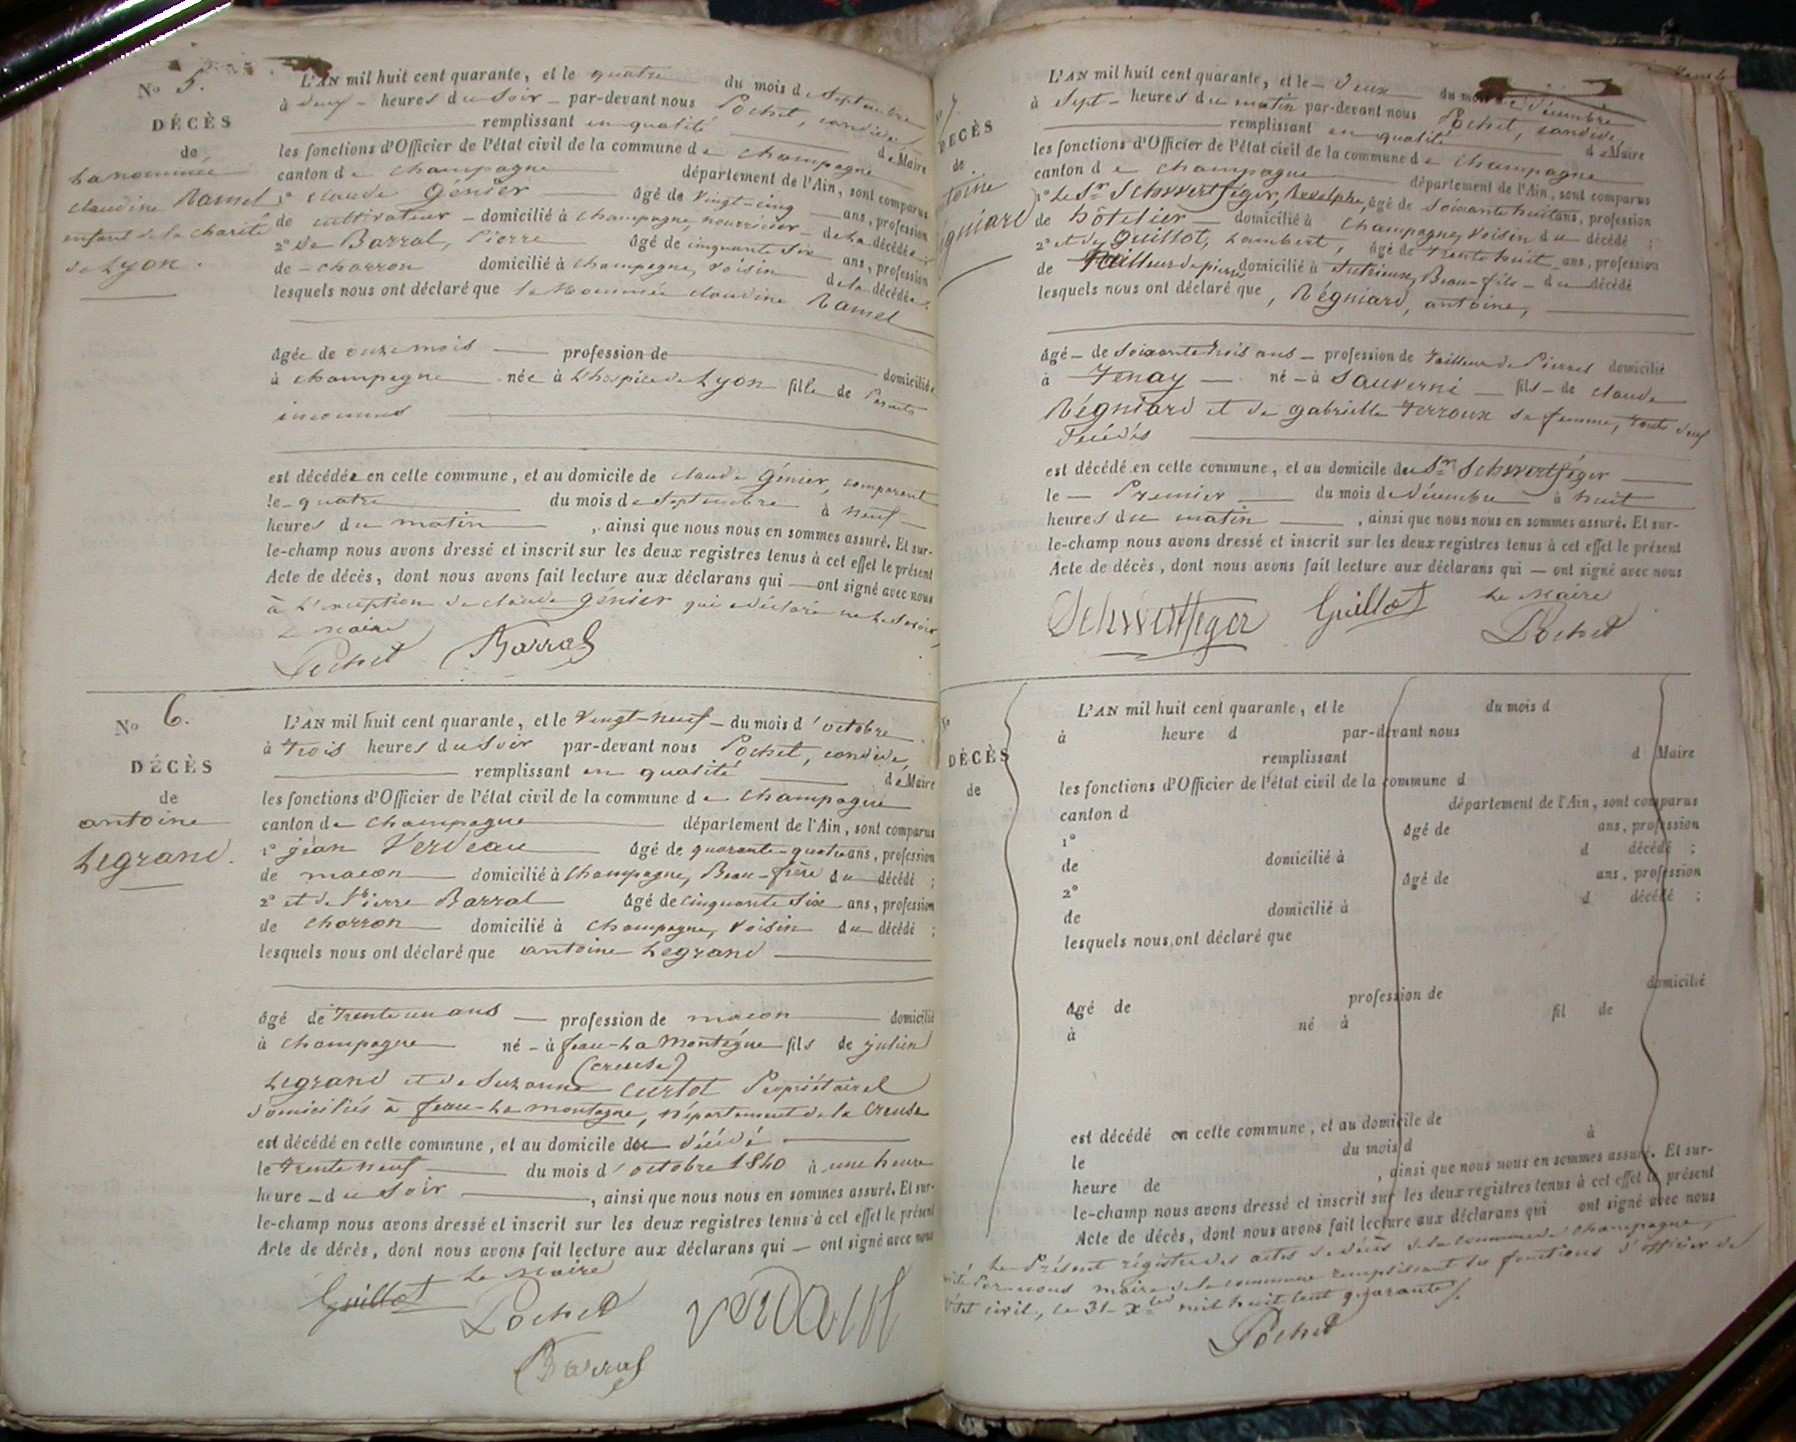 No 5.
DÉCÈS
de
La nommée
claudine Ramel
enfant de la charité
de Lyon.
L'AN mil huit cent quarante, et le quatre du mois de Septembre
à deux heures du Soir par-devant nous Pochet, candide,
remplissant en qualité de Maire
les fonctions d'Officier de l'état civil de la commune de champagne
canton de champagne département de l'Ain, sont comparus
1° claude Génier âgé de vingt-cinq ans, profession
de cultivateur domicilié à champagne, nourricier de la décédée;
2° de Barral, Pierre âgé de cinquante Six ans, profession
de charron domicilié à champagne, voisin de la décédée;
lesquels nous ont déclaré que la Nommée claudine Ramel
âgée de onze mois profession de domiciliée
à champagne née à L'hospice de Lyon fille de Parents
inconnus
est décédée en cette commune, et au domicile de claude Génier, comparent
le quatre du mois de Septembre à neuf
heures du matin, ainsi que nous nous en sommes assuré. Et sur-
le-champ nous avons dressé et inscrit sur les deux registres tenus à cet effet le présent
Acte de décès, dont nous avons fait lecture aux déclarans qui ont signé avec nous
à L'exception de claude Génier qui a déclaré ne le Savoir,
Le Maire
Pochet Barral
No 6.
DÉCÈS
de
antoine
Legrand.
L'AN mil huit cent quarante, et le vingt-neuf du mois d'octobre
à trois heures du Soir par-devant nous Pochet, candide,
remplissant en qualité de Maire
les fonctions d'Officier de l'état civil de la commune de champagne
canton de champagne département de l'Ain, sont comparus
1° jean Verdeau âgé de quarante-quatre ans, profession
de macon domicilié à Champagne, Beau-frère du décédé;
2° et de Pierre Barral âgé de cinquante Six ans, profession
de charron domicilié à champagne, voisin du décédé;
lesquels nous ont déclaré que antoine Legrand
âgé de trente un ans profession de macon domicilié
à champagne né à feau-La Montagne fils de julien
(creuse)
Legrand et de Suzanne curtot Propriétaires
domiciliés à feau-La montagne, département de la Creuse
est décédé en cette commune, et au domicile du décédé
le trente neuf du mois d'octobre 1840 à une heure
heure du Soir, ainsi que nous nous en sommes assuré. Et sur-
le-champ nous avons dressé et inscrit sur les deux registres tenus à cet effet le présent
Acte de décès, dont nous avons fait lecture aux déclarans qui ont signé avec nous
Le Maire
Guillot Pochet
Barral
7
DÉCÈS
de
toine
gniard
L'AN mil huit cent quarante, et le deux du mois de décembre
à Sept heures du matin par-devant nous Pochet, candide,
remplissant en qualité de Maire
les fonctions d'Officier de l'état civil de la commune de champagne
canton de champagne département de l'Ain, sont comparus
1° Le Sr Schwertféger, âgé de Soixante huit ans, profession
de hôtelier domicilié à Champagne, voisin du décédé;
2° et de Guillot, Lambert, âgé de trente huit ans, profession
de tailleur de pierres domicilié à Jujurieux, Beau-fils du décédé
lesquels nous ont déclaré que, Régniard, antoine,
âgé de Soixante trois ans profession de tailleur de Pierres domicilié
à Tenay né à Sauverné fils de claude
Régniard et de gabrielle Terroux sa femme, touts deux
décédés
est décédé en cette commune, et au domicile du Sr Schwertféger
le Premier du mois de décembre à huit
heures du matin, ainsi que nous nous en sommes assuré. Et sur-
le-champ nous avons dressé et inscrit sur les deux registres tenus à cet effet le présent
Acte de décès, dont nous avons fait lecture aux déclarans qui ont signé avec nous
Le Maire
Schwertfeger Guillot Pochet
DÉCÈS
de
L'AN mil huit cent quarante, et le du mois d
à heure d par-devant nous
remplissant d Maire
les fonctions d'Officier de l'état civil de la commune d
canton d département de l'Ain, sont comparus
1° âgé de ans, profession
de domicilié à d décédé;
2° âgé de ans, profession
de domicilié à d décédé;
lesquels nous ont déclaré que
âgé de profession de domicilié
à né à fil de
est décédé en cette commune, et au domicile de
le du mois d à
heure de, ainsi que nous nous en sommes assuré. Et sur-
le-champ nous avons dressé et inscrit sur les deux registres tenus à cet effet le présent
Acte de décès, dont nous avons fait lecture aux déclarans qui ont signé avec nous
Le Présent régistre des actes de décès de la commune de champagne,
Par nous maire de la commune remplissant les fonctions d'officier de
l'état civil, le 31 Xbre mil huit cent quarante.
Pochet